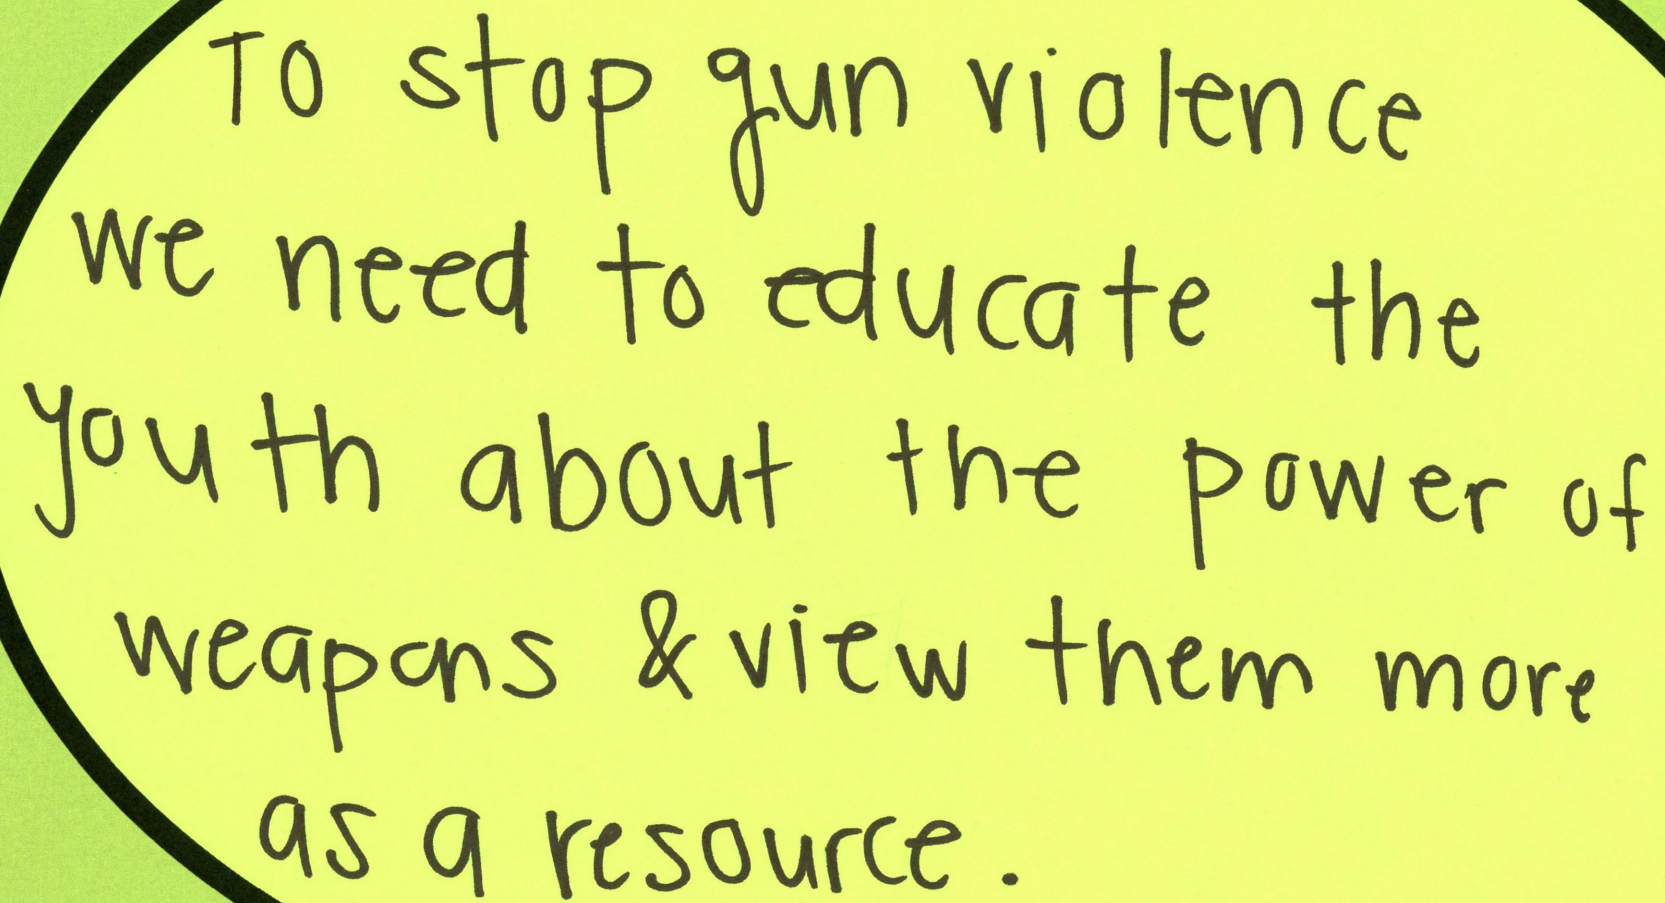 To stop gun violence
we need to educate the
youth about the power of
weapons & view them more
as a resource.